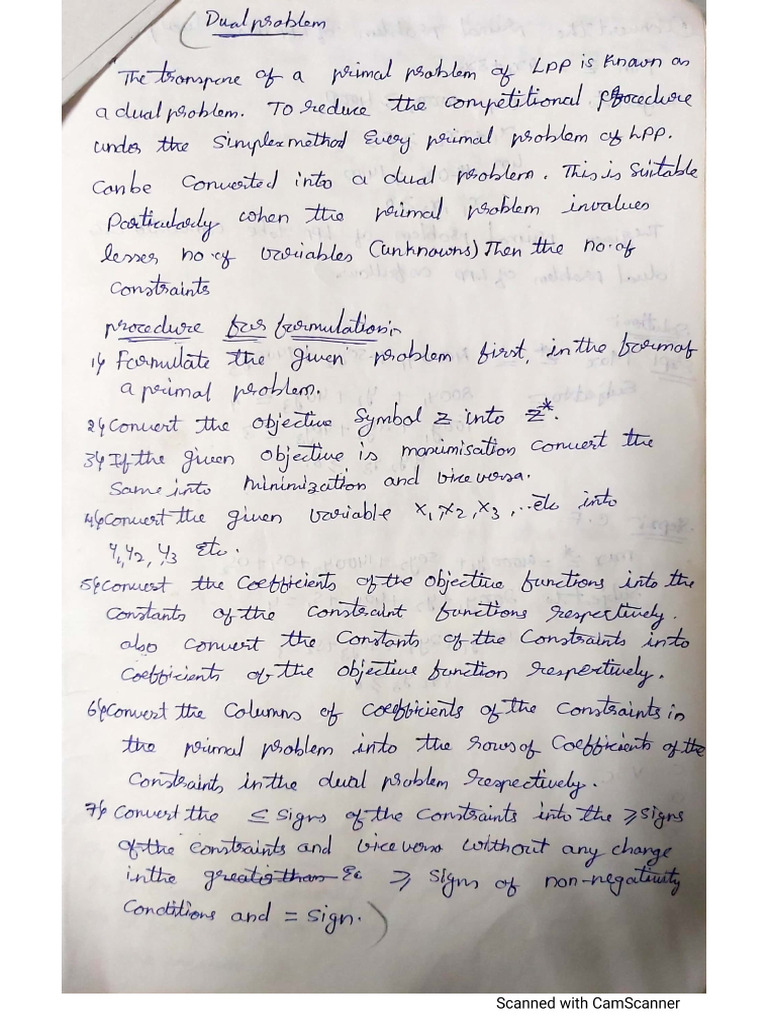 Dual problem
The transpose of a primal problem of LPP is known as
a dual problem. To reduce the competitional procedure
under the simplex method Every primal problem of LPP.
can be converted into a dual problem. This is suitable
particularly when the primal problem involues
lesser no. of variables (unknowns) Then the no. of
constraints
procedure for formulation:-
1) Formulate the given problem first, in the form of
a primal problem.
2) Convert the objective symbol Z into Z*.
3) If the given objective is maximisation convert the
same into minimization and vice versa.
4) Convert the given variable x1, x2, x3, ..etc into
y1, y2, y3 etc.
5) Convert the coefficients of the objective functions into the
constants of the constraint functions respectively.
also convert the constants of the constraints into
coefficients of the objective function respectively.
6) Convert the columns of coefficients of the constraints in
the primal problem into the rows of coefficients of the
constraints in the dual problem respectively.
7) Convert the ≤ signs of the constraints into the ≥ signs
of the constraints and vice versa without any change
in the greater than ≥ signs of non-negativity
conditions and = sign.
Scanned with CamScanner